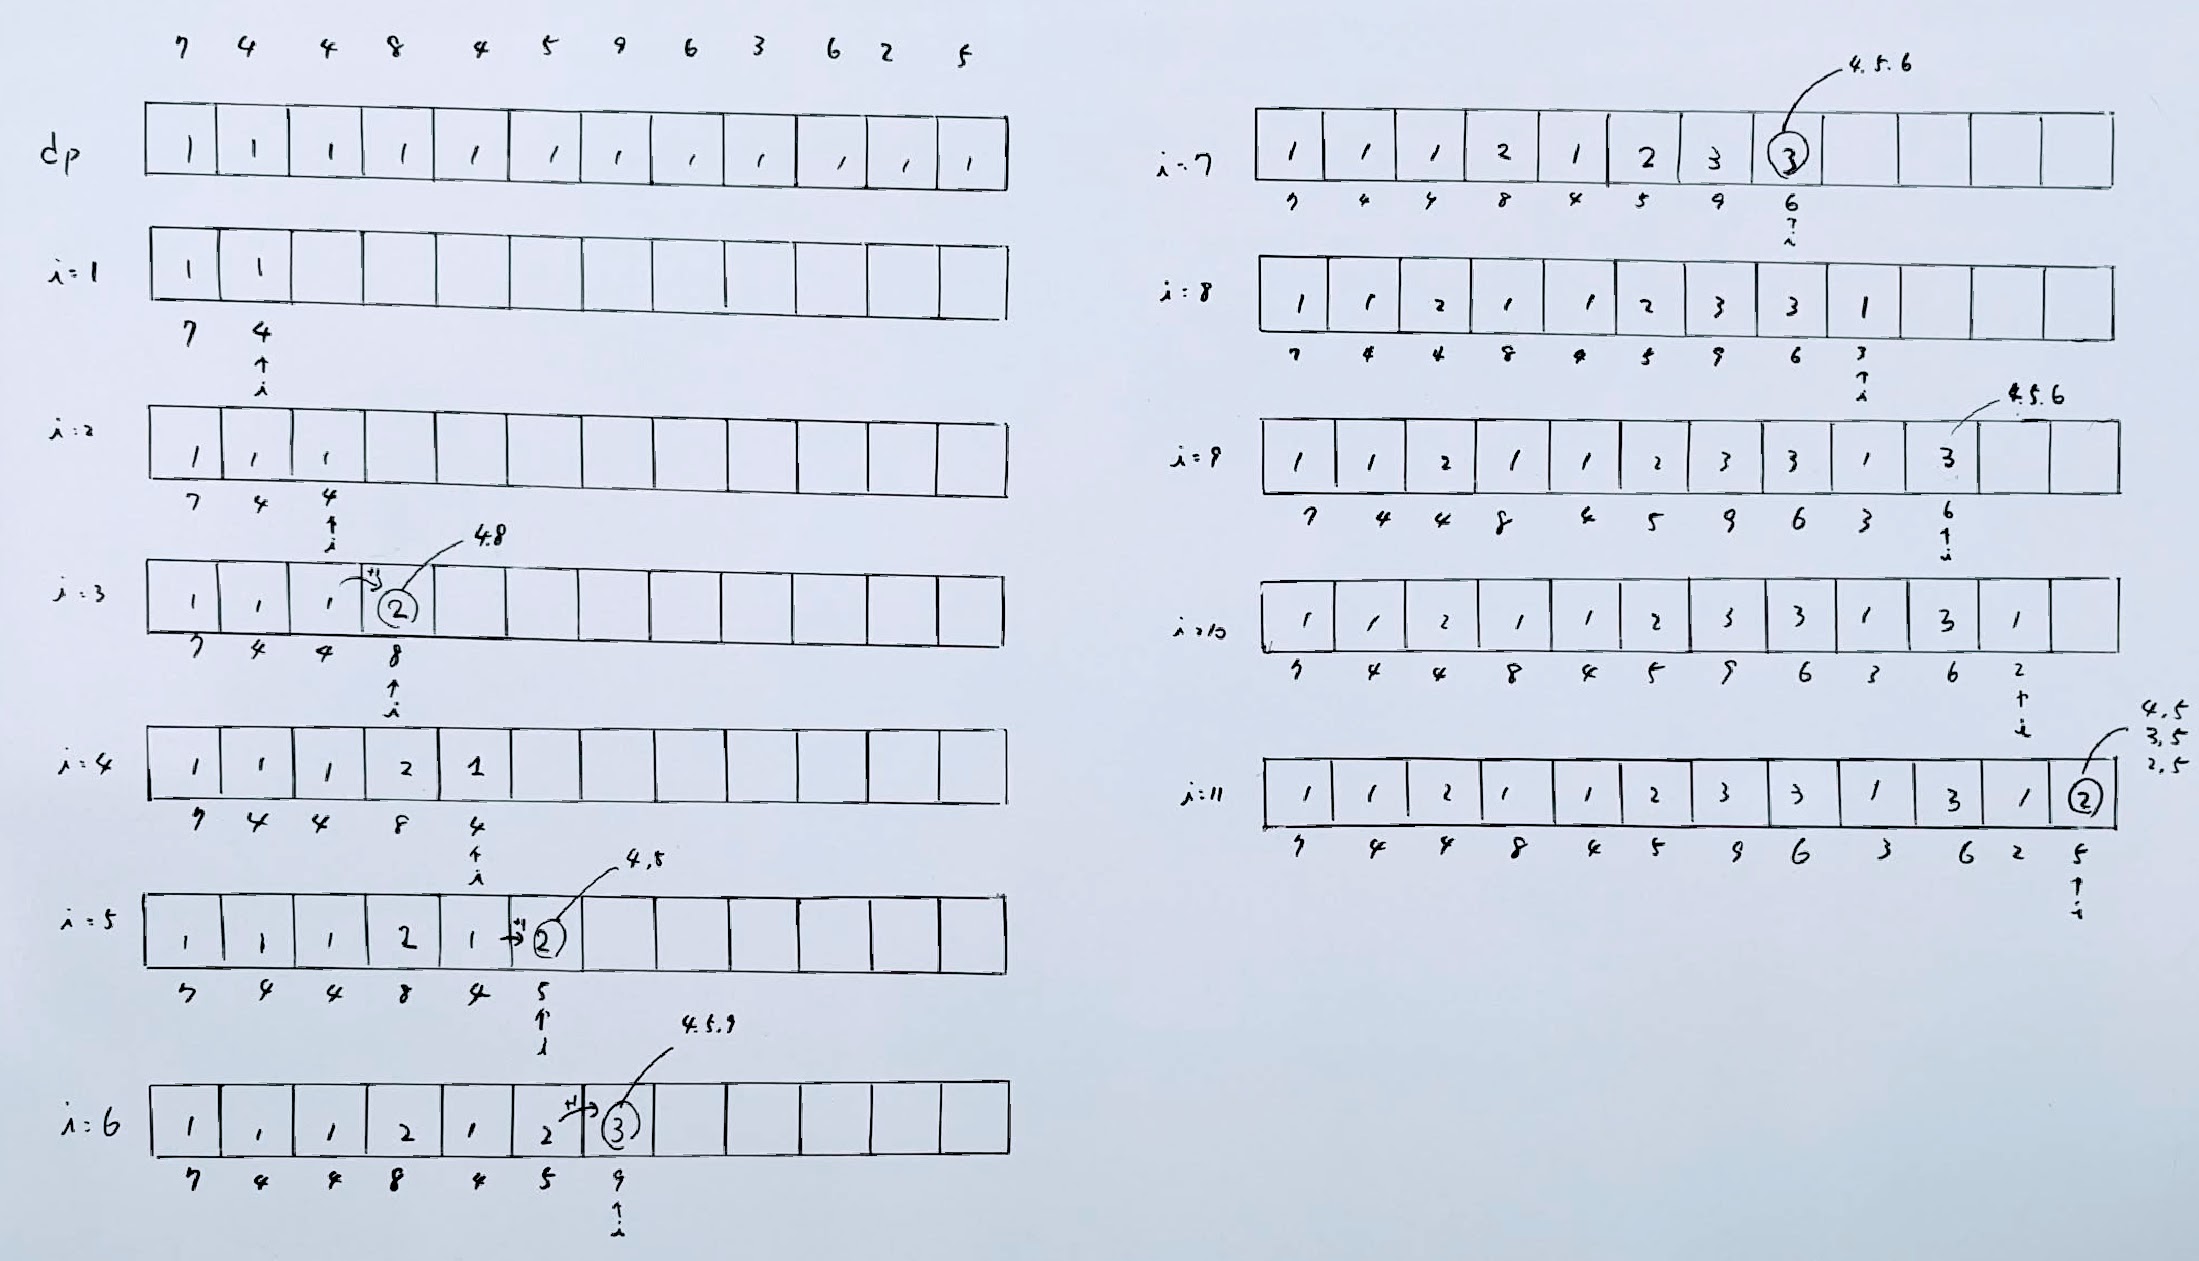 7 4 4 8 4 5 9 6 3 6 2 5
dp 1 1 1 1 1 1 1 1 1 1 1 1
i=1 1 1
7 4
↑
i
i=2 1 1 1
7 4 4
↑
i
4.8
+1
i=3 1 1 1 2
7 4 4 8
↑
i
i=4 1 1 1 2 1
7 4 4 8 4
↑
i
4,5
+1
i=5 1 1 1 2 1 2
7 4 4 8 4 5
↑
i
4.5.9
+1
i=6 1 1 1 2 1 2 3
7 4 4 8 4 5 9
↑
i
4.5.6
i=7 1 1 1 2 1 2 3 3
7 4 4 8 4 5 9 6
↑
i
i=8 1 1 2 1 1 2 3 3 1
7 4 4 8 4 5 9 6 3
↑
i
4.5.6
i=9 1 1 2 1 1 2 3 3 1 3
7 4 4 8 4 5 9 6 3 6
↑
i
i=10 1 1 2 1 1 2 3 3 1 3 1
7 4 4 8 4 5 9 6 3 6 2
↑
i
4,5
3,5
2,5
i=11 1 1 2 1 1 2 3 3 1 3 1 2
7 4 4 8 4 5 9 6 3 6 2 5
↑
i